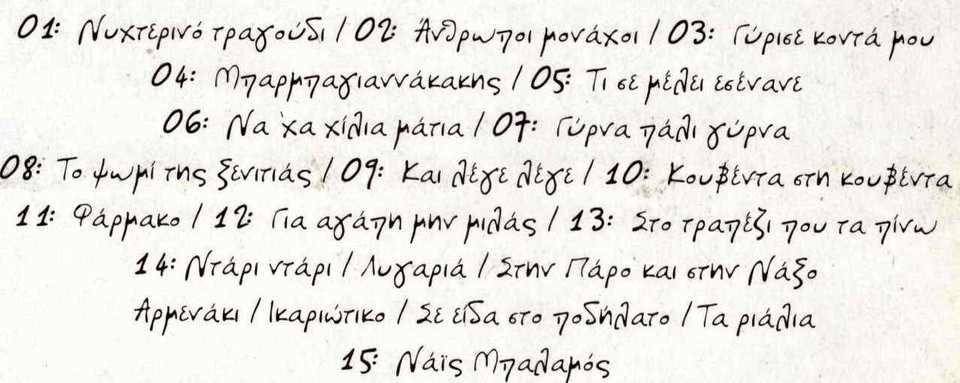 01: Νυχτερινό τραγούδι / 02: Άνθρωποι μονάχοι / 03: Γύρισε κοντά μου
04: Μπαρμπαγιαννάκακης / 05: Τι σε μέλει εσένανε
06: Να 'χα χίλια μάτια / 07: Γύρνα πάλι γύρνα
08: Το ψωμί της ξενιτιάς / 09: Και λέγε λέγε / 10: Κουβέντα στη κουβέντα
11: Φάρμακο / 12: Για αγάπη μην μιλάς / 13: Στο τραπέζι που τα πίνω
14: Ντάρι ντάρι / Λυγαριά / Στην Πάρο και στην Νάξο
Αρμενάκι / Ικαριώτικο / Σε είδα στο ποδήλατο / Τα ριάλια
15: Νάϊς Μπαλαμός